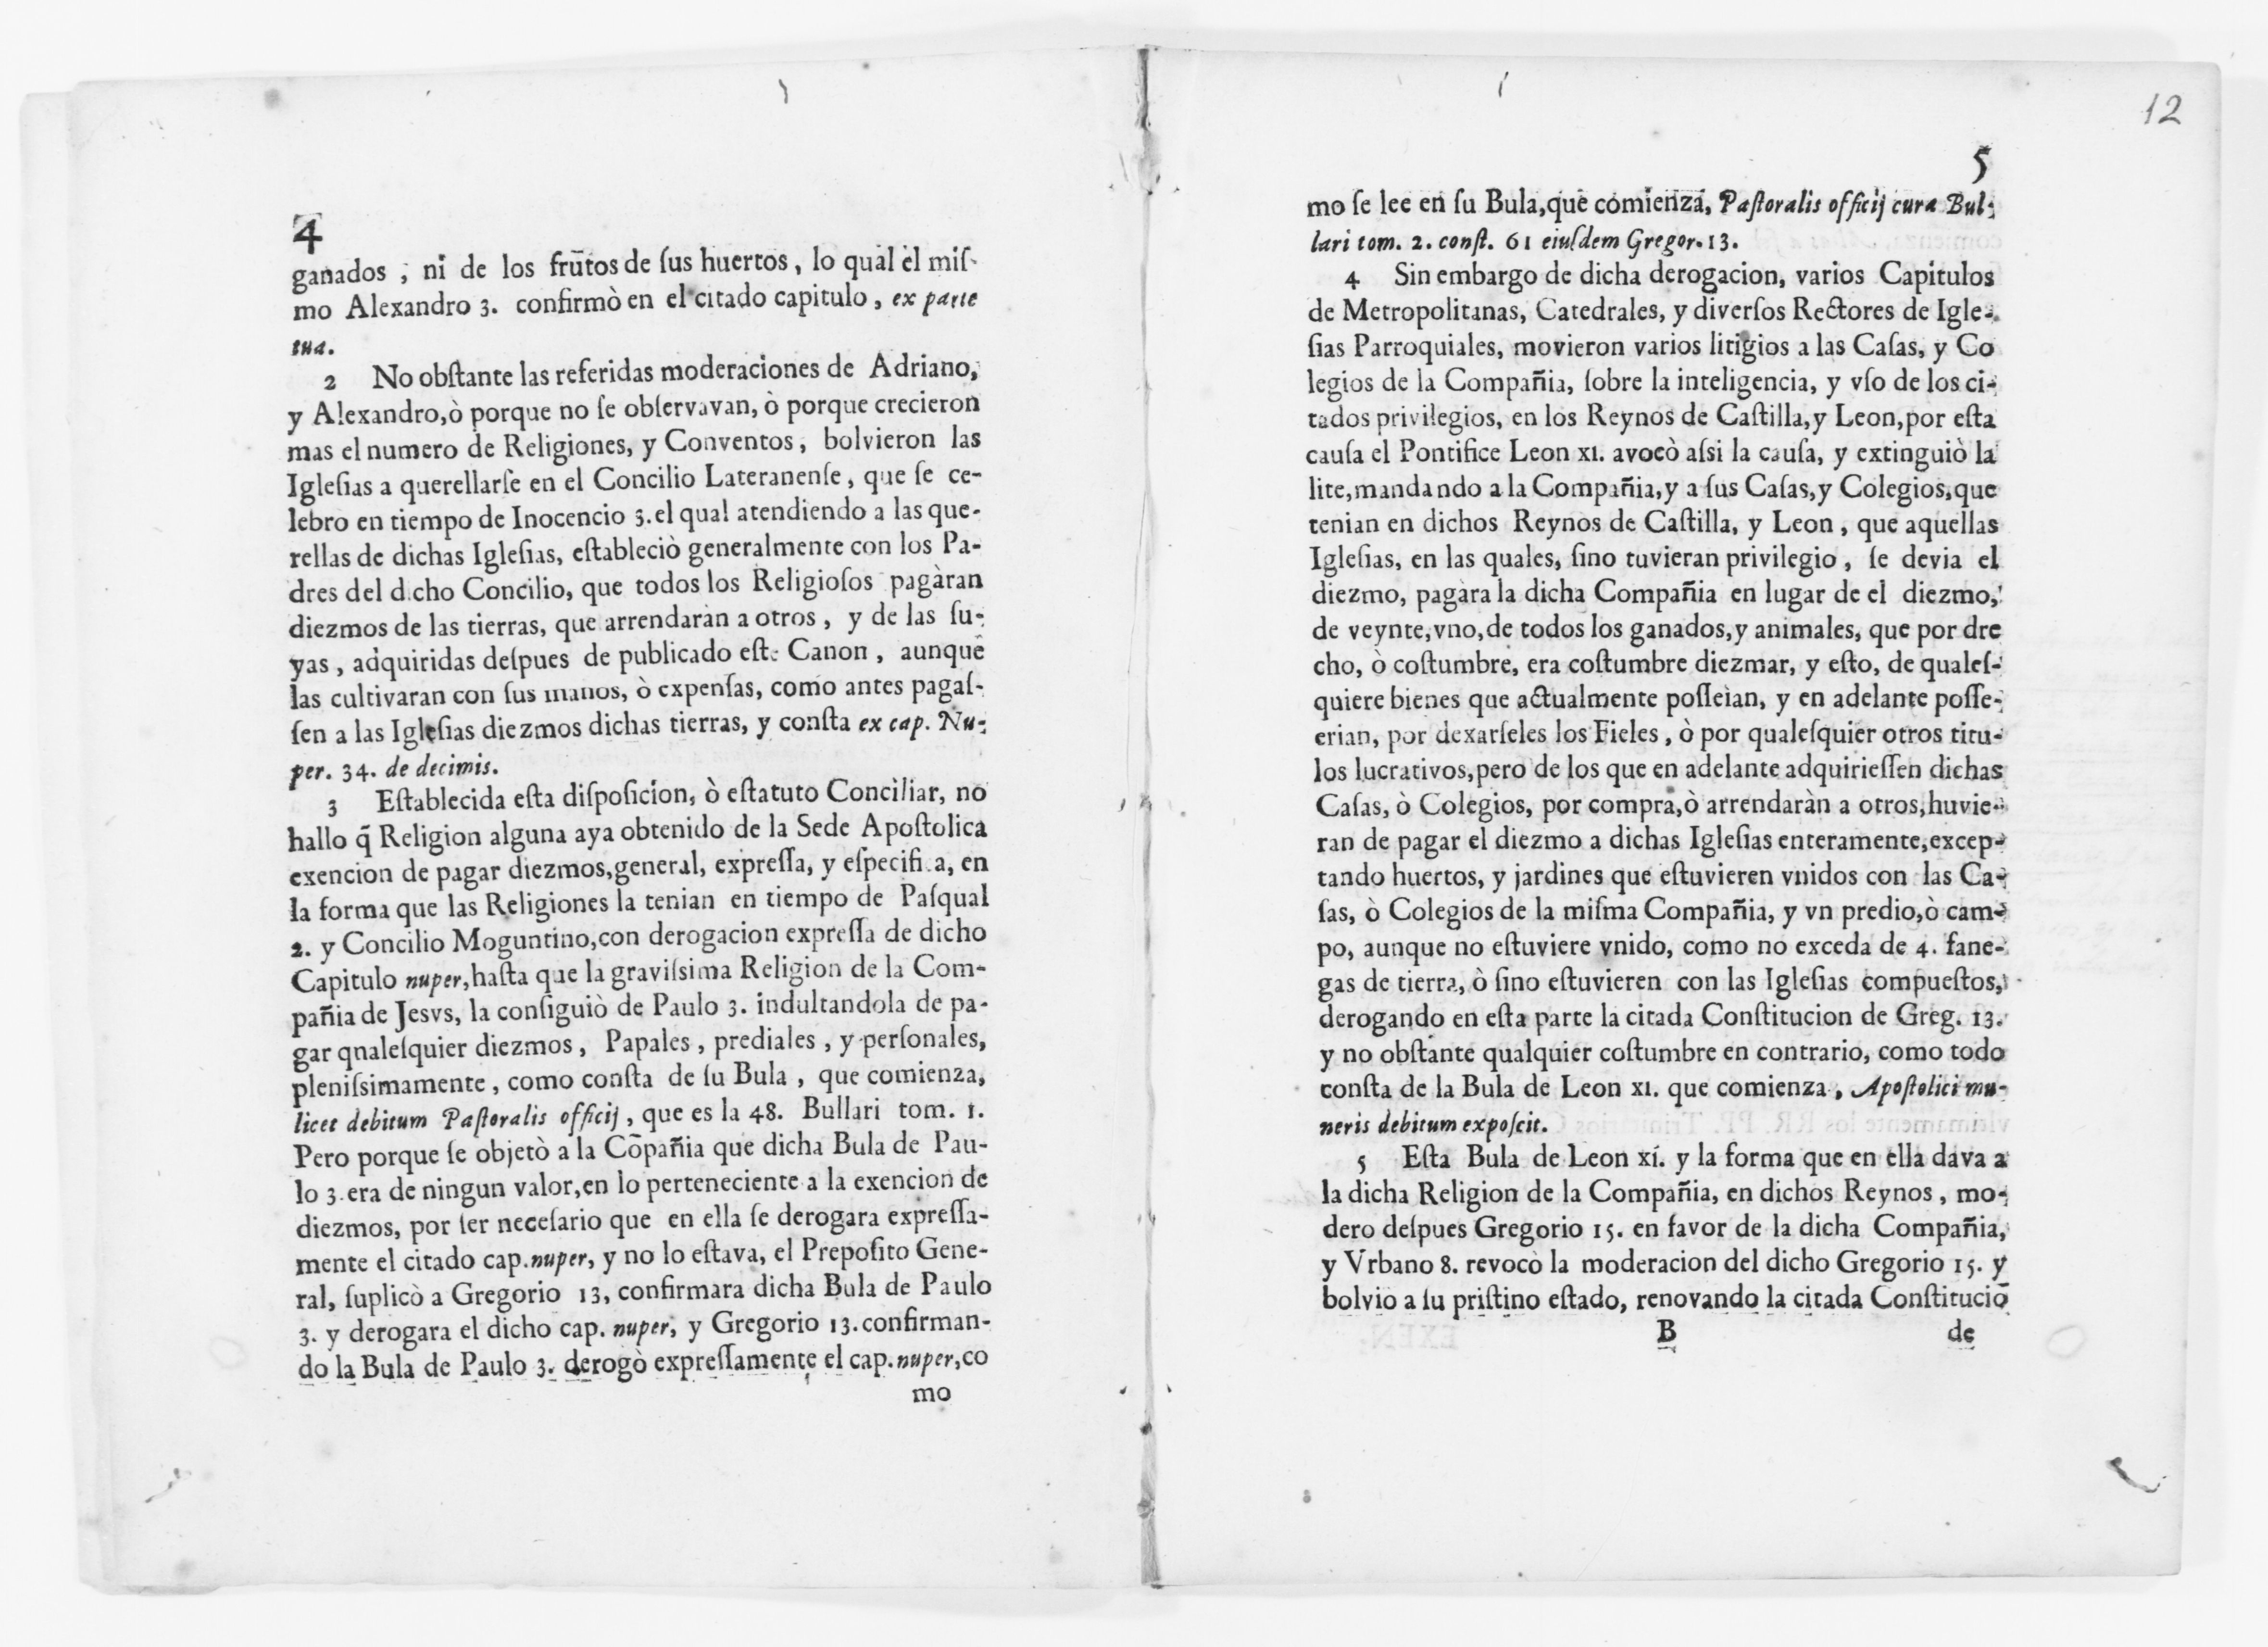 4
ganados , ni de los frutos de ſus huertos , lo qual el miſ-
mo Alexandro 3. confirmò en el citado capitulo , ex parte
tua.
2 No obſtante las referidas moderaciones de Adriano,
y Alexandro,ò porque no ſe obſervavan, ò porque crecieron
mas el numero de Religiones, y Conventos , bolvieron las
Igleſias a querellarſe en el Concilio Lateranenſe , que ſe ce-
lebrò en tiempo de Inocencio 3.el qual atendiendo a las que-
rellas de dichas Igleſias, eſtableciò generalmente con los Pa-
dres del dicho Concilio, que todos los Religioſos pagàran
diezmos de las tierras, que arrendaràn a otros , y de las ſu-
yas , adquiridas deſpues de publicado eſte Canon , aunque
las cultivaran con ſus manos, ò expenſas, como antes pagaſ-
ſen a las Igleſias diezmos dichas tierras, y conſta ex cap. Nu-
per. 34. de decimis.
3 Eſtablecida eſta diſpoſicion, ò eſtatuto Conciliar, no
hallo q̃ Religion alguna aya obtenido de la Sede Apoſtolica
exencion de pagar diezmos,general, expreſſa, y eſpecifica, en
la forma que las Religiones la tenian en tiempo de Paſqual
2. y Concilio Moguntino,con derogacion expreſſa de dicho
Capitulo nuper,haſta que la graviſsima Religion de la Com-
pañia de Jesvs, la conſiguiò de Paulo 3. indultandola de pa-
gar qnaleſquier diezmos , Papales , prediales , y perſonales,
pleniſsimamente , como conſta de ſu Bula , que comienza,
licet debitum Paſtoralis officij , que es la 48. Bullari tom. 1.
Pero porque ſe objetò a la Cõpañia que dicha Bula de Pau-
lo 3.era de ningun valor,en lo perteneciente a la exencion de
diezmos, por ſer neceſario que en ella ſe derogara expreſſa-
mente el citado cap.nuper, y no lo eſtava, el Prepoſito Gene-
ral, ſuplicò a Gregorio 13, confirmara dicha Bula de Paulo
3. y derogara el dicho cap. nuper, y Gregorio 13.confirman-
do la Bula de Paulo 3. derogò expreſſamente el cap.nuper,co
mo
12
5
mo ſe lee en ſu Bula,que comienza, Paſtoralis officij cura Bul-
lari tom. 2. conſt. 61 eiuſdem Gregor.13.
4 Sin embargo de dicha derogacion, varios Capitulos
de Metropolitanas, Catedrales, y diverſos Rectores de Igle-
ſias Parroquiales, movieron varios litigios a las Caſas, y Co
legios de la Compañia, ſobre la inteligencia, y vſo de los ci-
tados privilegios, en los Reynos de Caſtilla,y Leon,por eſta
cauſa el Pontifice Leon XI. avocò aſsi la cauſa, y extinguiò la
lite,mandando a la Compañia,y a ſus Caſas,y Colegios,que
tenian en dichos Reynos de Caſtilla, y Leon , que aquellas
Igleſias, en las quales, ſino tuvieran privilegio , ſe devia el
diezmo, pagàra la dicha Compañia en lugar de el diezmo,
de veynte,vno,de todos los ganados,y animales, que por dre
cho, ò coſtumbre, era coſtumbre diezmar, y eſto, de qualeſ-
quiere bienes que actualmente poſſeìan, y en adelante poſſe-
erian, por dexarſeles los Fieles , ò por qualeſquier otros titu-
los lucrativos,pero de los que en adelante adquirieſſen dichas
Caſas, ò Colegios, por compra,ò arrendaràn a otros,huvie-
ran de pagar el diezmo a dichas Igleſias enteramente,excep-
tando huertos, y jardines que eſtuvieren vnidos con las Ca-
ſas, ò Colegios de la miſma Compañia, y vn predio,ò cam-
po, aunque no eſtuviere vnido, como no exceda de 4. fane-
gas de tierra, ò ſino eſtuvieren con las Igleſias compueſtos,
derogando en eſta parte la citada Conſtitucion de Greg. 13.
y no obſtante qualquier coſtumbre en contrario, como todo
conſta de la Bula de Leon XI. que comienza , Apoſtolici mu-
neris debitum expoſcit.
5 Eſta Bula de Leon XI. y la forma que en ella dava a
la dicha Religion de la Compañia, en dichos Reynos , mo-
derò deſpues Gregorio 15. en favor de la dicha Compañia,
y Vrbano 8. revocò la moderacion del dicho Gregorio 15. y
bolviò a ſu priſtino eſtado, renovando la citada Conſtituciõ
B de